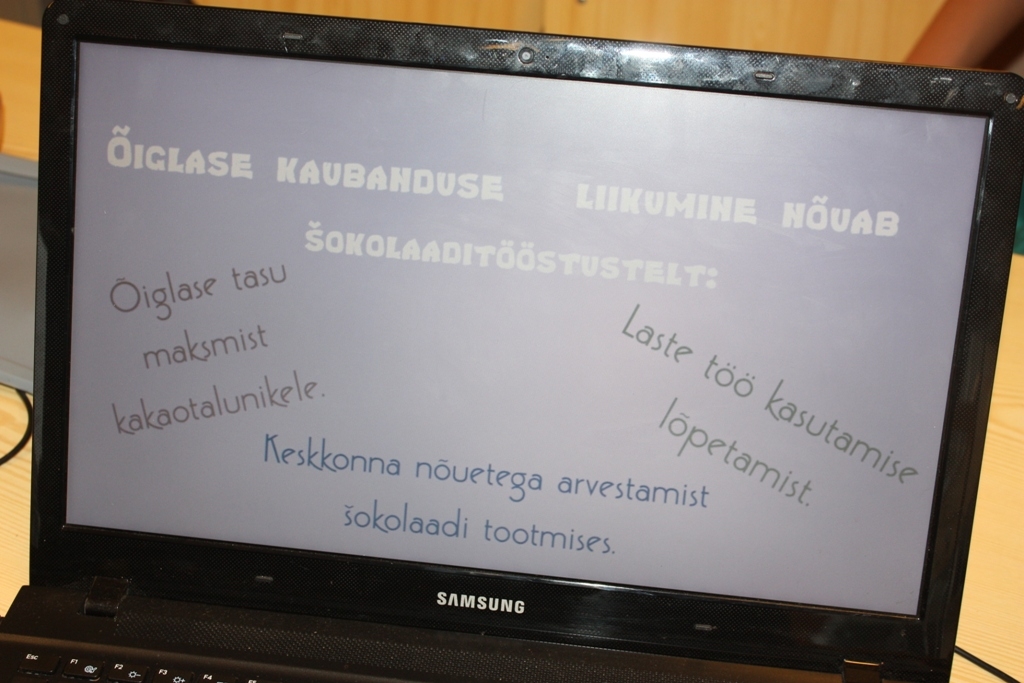 Õiglase kaubanduse liikumine nõuab
šokolaaditööstustelt:
Õiglase tasu
maksmist
kakaotalunikele.
Laste töö kasutamise
lõpetamist.
Keskkonna nõuetega arvestamist
šokolaadi tootmises.
SAMSUNG
Esc F1 F2 F3 F4